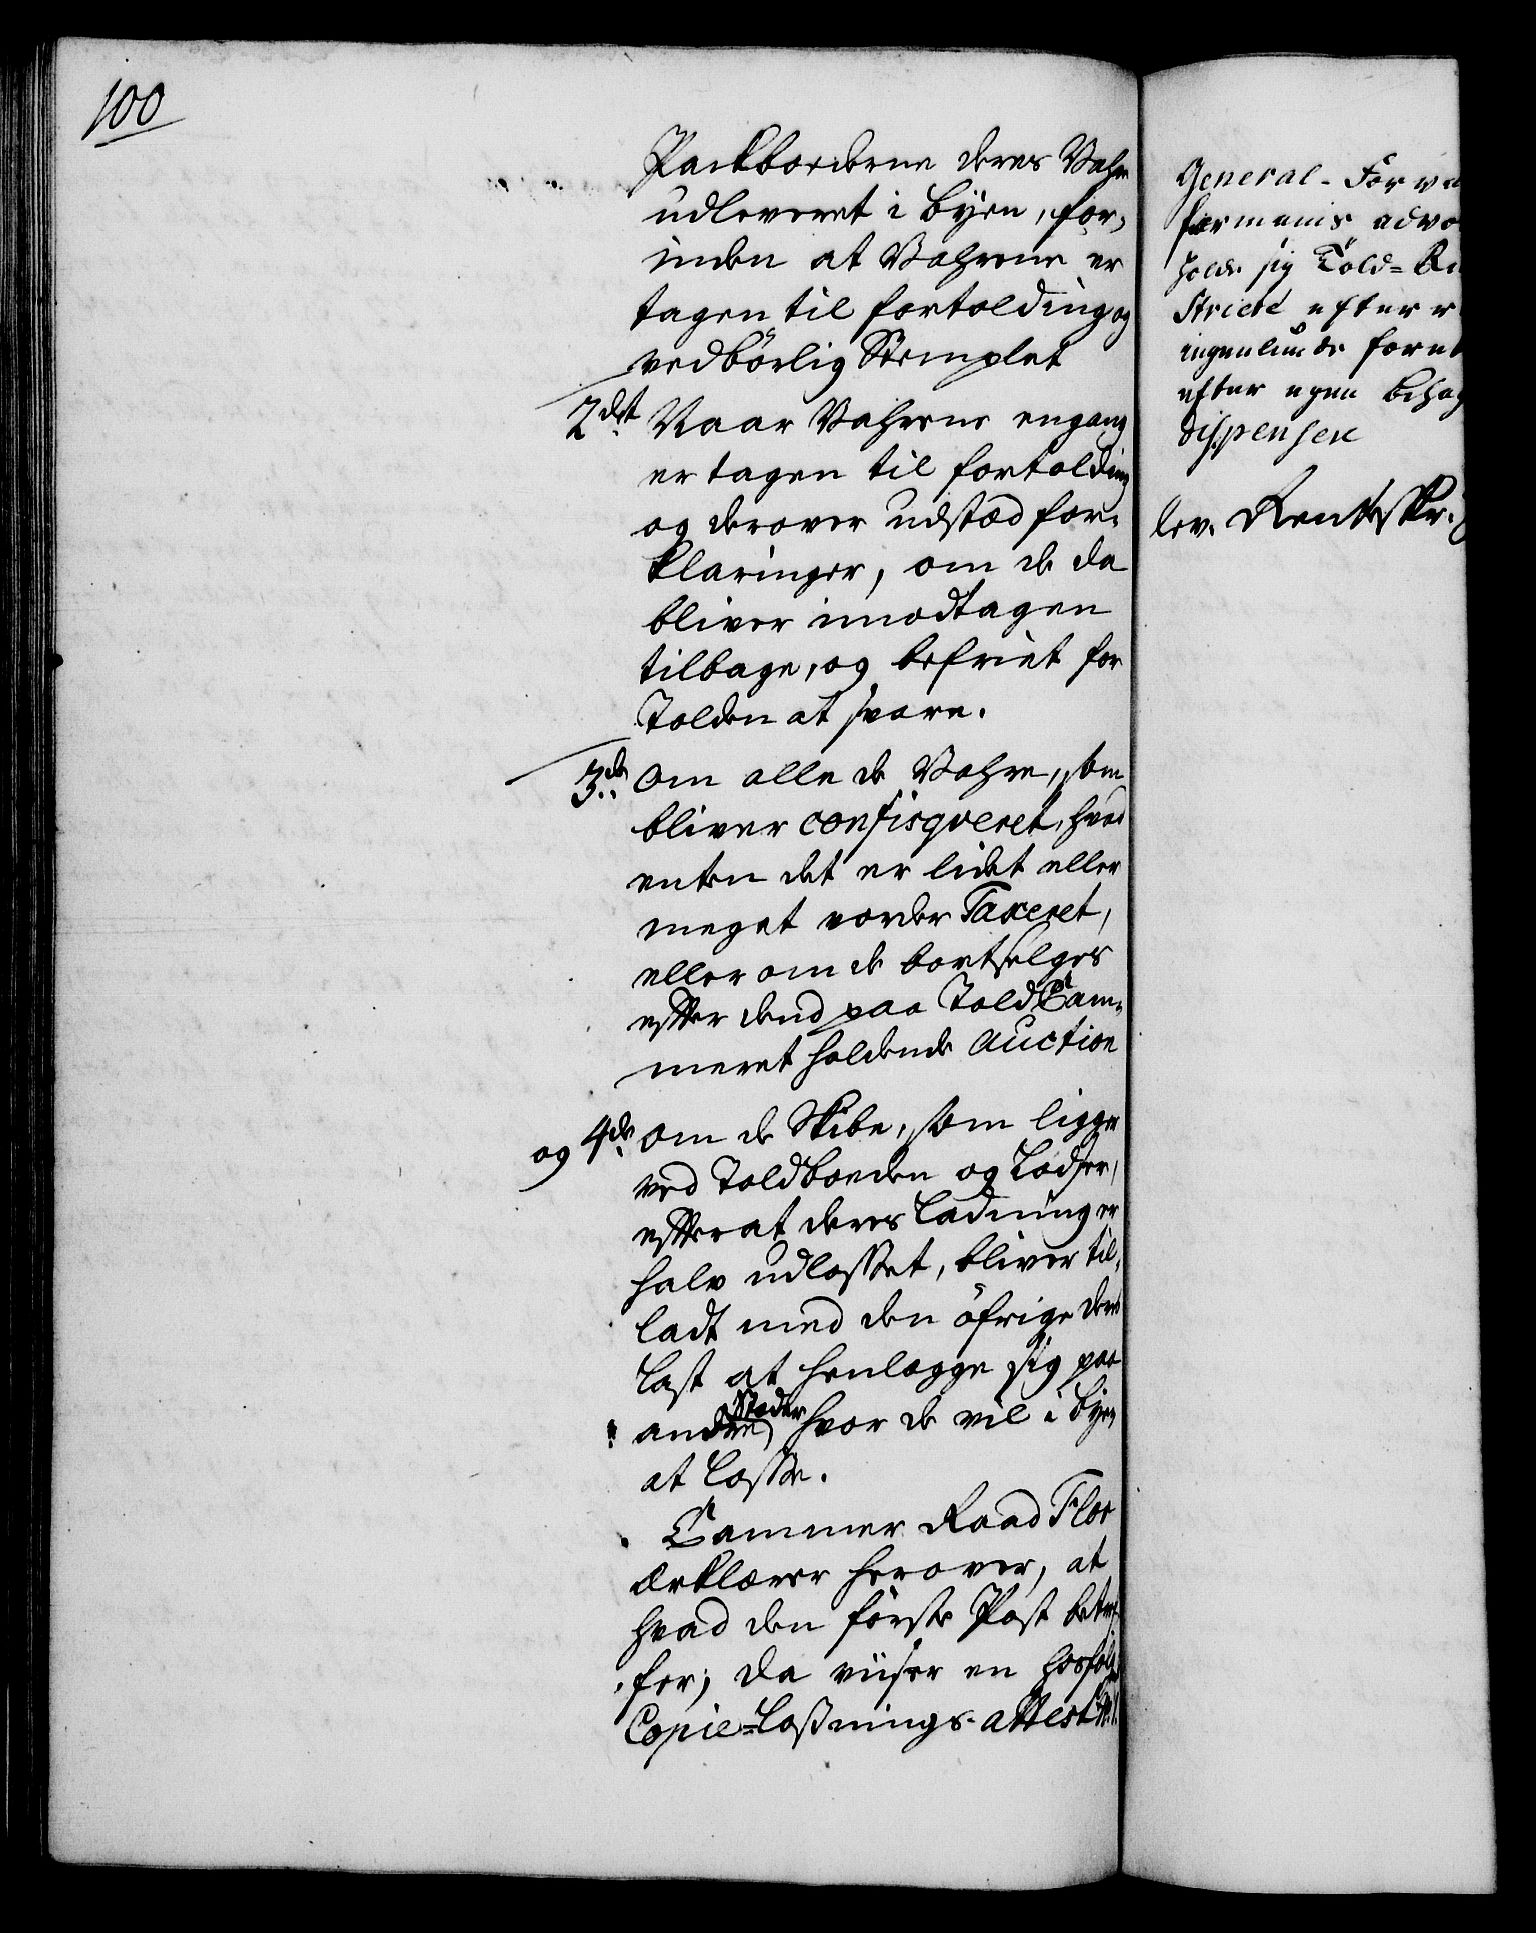 100
Packboderne deres Vahre
udleveret i Byen, for,
inden at Vahrene er
tagen til fortolding og
vedbørlig Stemplet
2det Naar Vahrene engang
er tagen til fortolding
og derover udstæd for-
klaringer, om de da
bliver imodtagen
tilbage, og befriet for
Tolden at svare.
3de om alle de Vahre, som
bliver confisqveret, hvad
enten det er lidet eller
meget vorder Taxeret,
eller om de bortselges
efter dend paa Told Cam-
meret holdende Auction
og 4de om de Skibe, som ligger
ved Toldboeden og Losser,
efter at deres Ladning er
halv udlosset, bliver til-
ladt med den øfrige deres
Last at henlægge sig paa
andre Stæder hvor de vil i Byen
at losse.
Cammer Raad Flor
erklærer herover, at
hvad den første Post betref-
fer; da viiser en hosfølgende
Copie-Losnings-Attest N. 1.
General-Forva
formanis advo
holde sig Told-
Stricte efter
ingenlunde
efter egen behag
dispensere
lev. Renteskr.